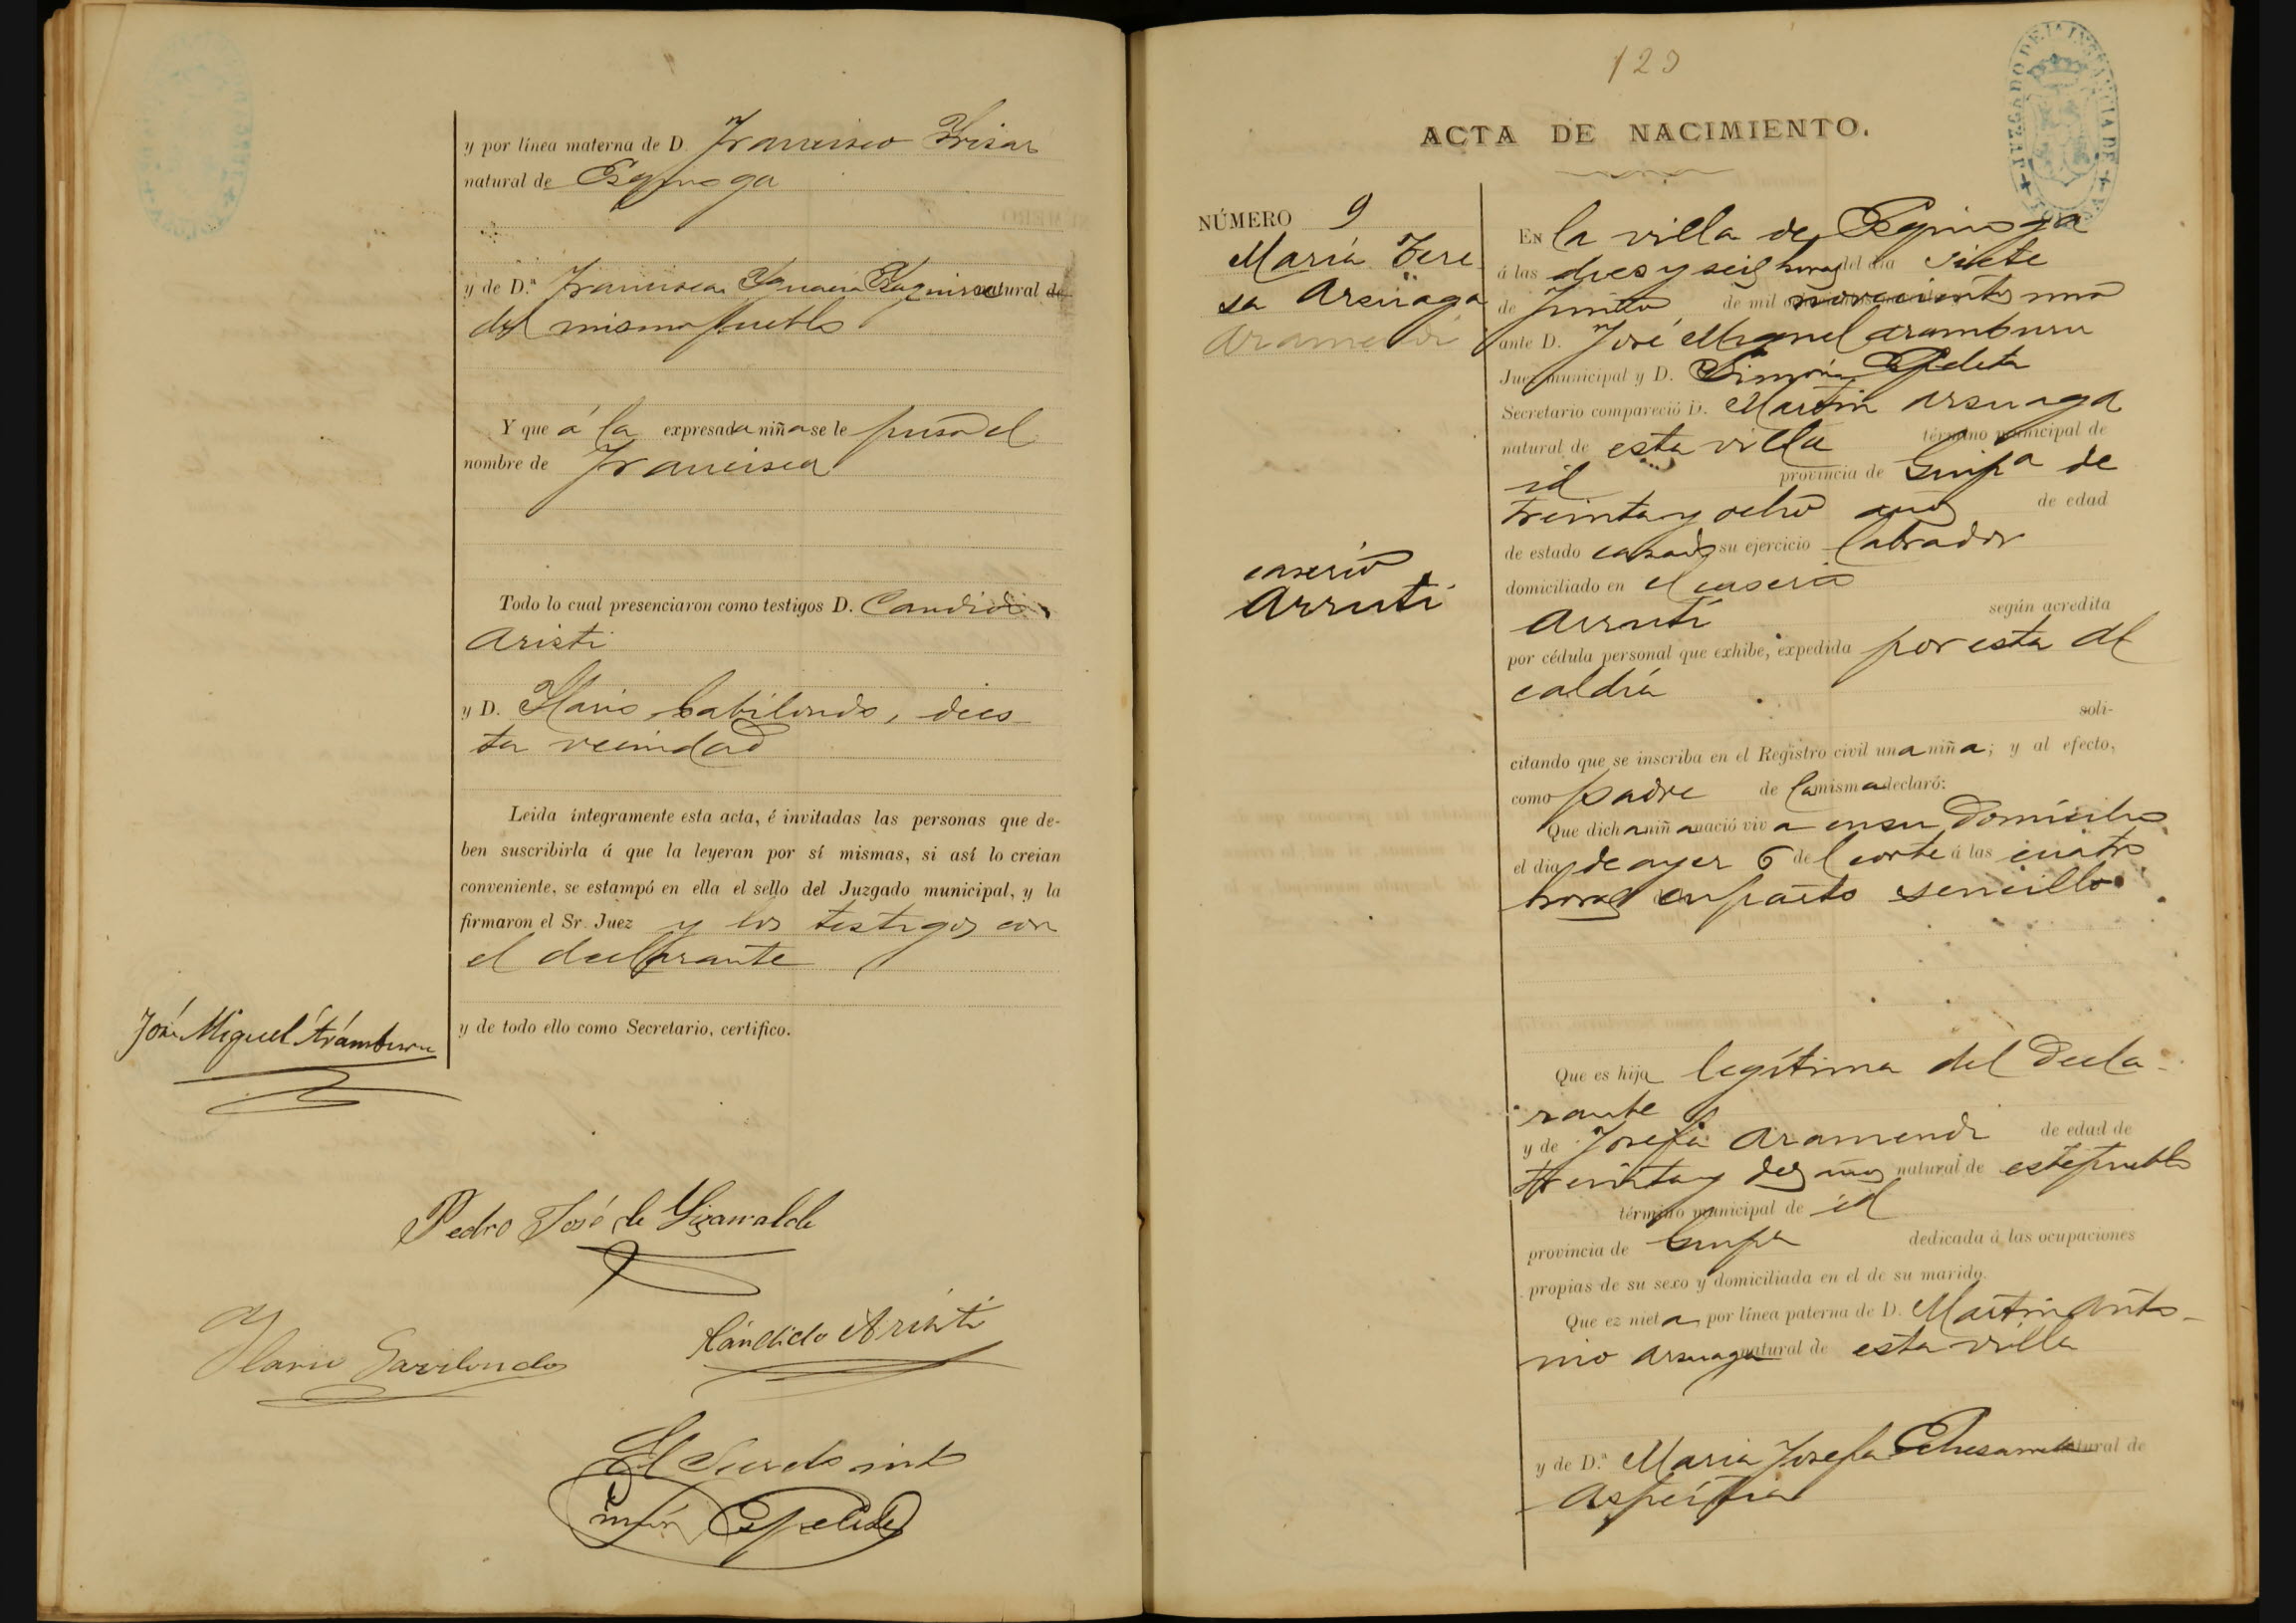 y por línea materna de D. Francisco Irisar
natural de Ezquioga
y de D.ª Francisca Ygnacia natural de
del mismo pueblo
Y que á la expresada niña se le puso el
nombre de Francisca
Todo lo cual presenciaron como testigos D. Candido
Aristi
y D. Ylario Gabilondo, de es
ta vecindad
Leida íntegramente esta acta, é invitadas las personas que de-
ben suscribirla á que la leyeran por sí mismas, si así lo creian
conveniente, se estampó en ella el sello del Juzgado municipal, y la
firmaron el Sr. Juez y los testigos con
el declarante
y de todo ello como Secretario, certifico.
José Miguel Arámburu
Pedro José de
Ylario Gavilondo
Cándido Aristi
El Secretario
Simón Apeliz
120
ACTA DE NACIMIENTO.
JUZGADO DE 1ª INSTANCIA DE
NÚMERO 9
María Tere
sa Arsuaga
Aramendi
caserio
Arruti
En la villa de Ezquioga
á las dies y seis horas del dia siete
de Junio de mil novecientos uno
ante D. José Miguel Aramburu
Juez municipal y D. Simón
Secretario compareció D. Martin Arsuaga
natural de esta villa término municipal de
id provincia de Guipa de
treinta y ocho años de edad
de estado casado su ejercicio labrador
domiciliado en el caserio
Arruti según acredita
por cédula personal que exhibe, expedida por esta Al
caldía
soli-
citando que se inscriba en el Registro civil una niña; y al efecto,
como padre de la misma declaró:
Que dicha niña nació viva en su domicilio
el dia de ayer 6 del corte á las cuatro
horas en parto sencillo.
Que es hija legítima del decla-
rante
y de Josefa Aramendi de edad de
treinta y dos años natural de este pueblo
término municipal de id
provincia de Guipa dedicada á las ocupaciones
propias de su sexo y domiciliada en el de su marido.
Que ez nieta por línea paterna de D. Martin Anto-
nio Arsuaga natural de esta villa
y de D.ª Maria Josefa natural de
Aspeitia